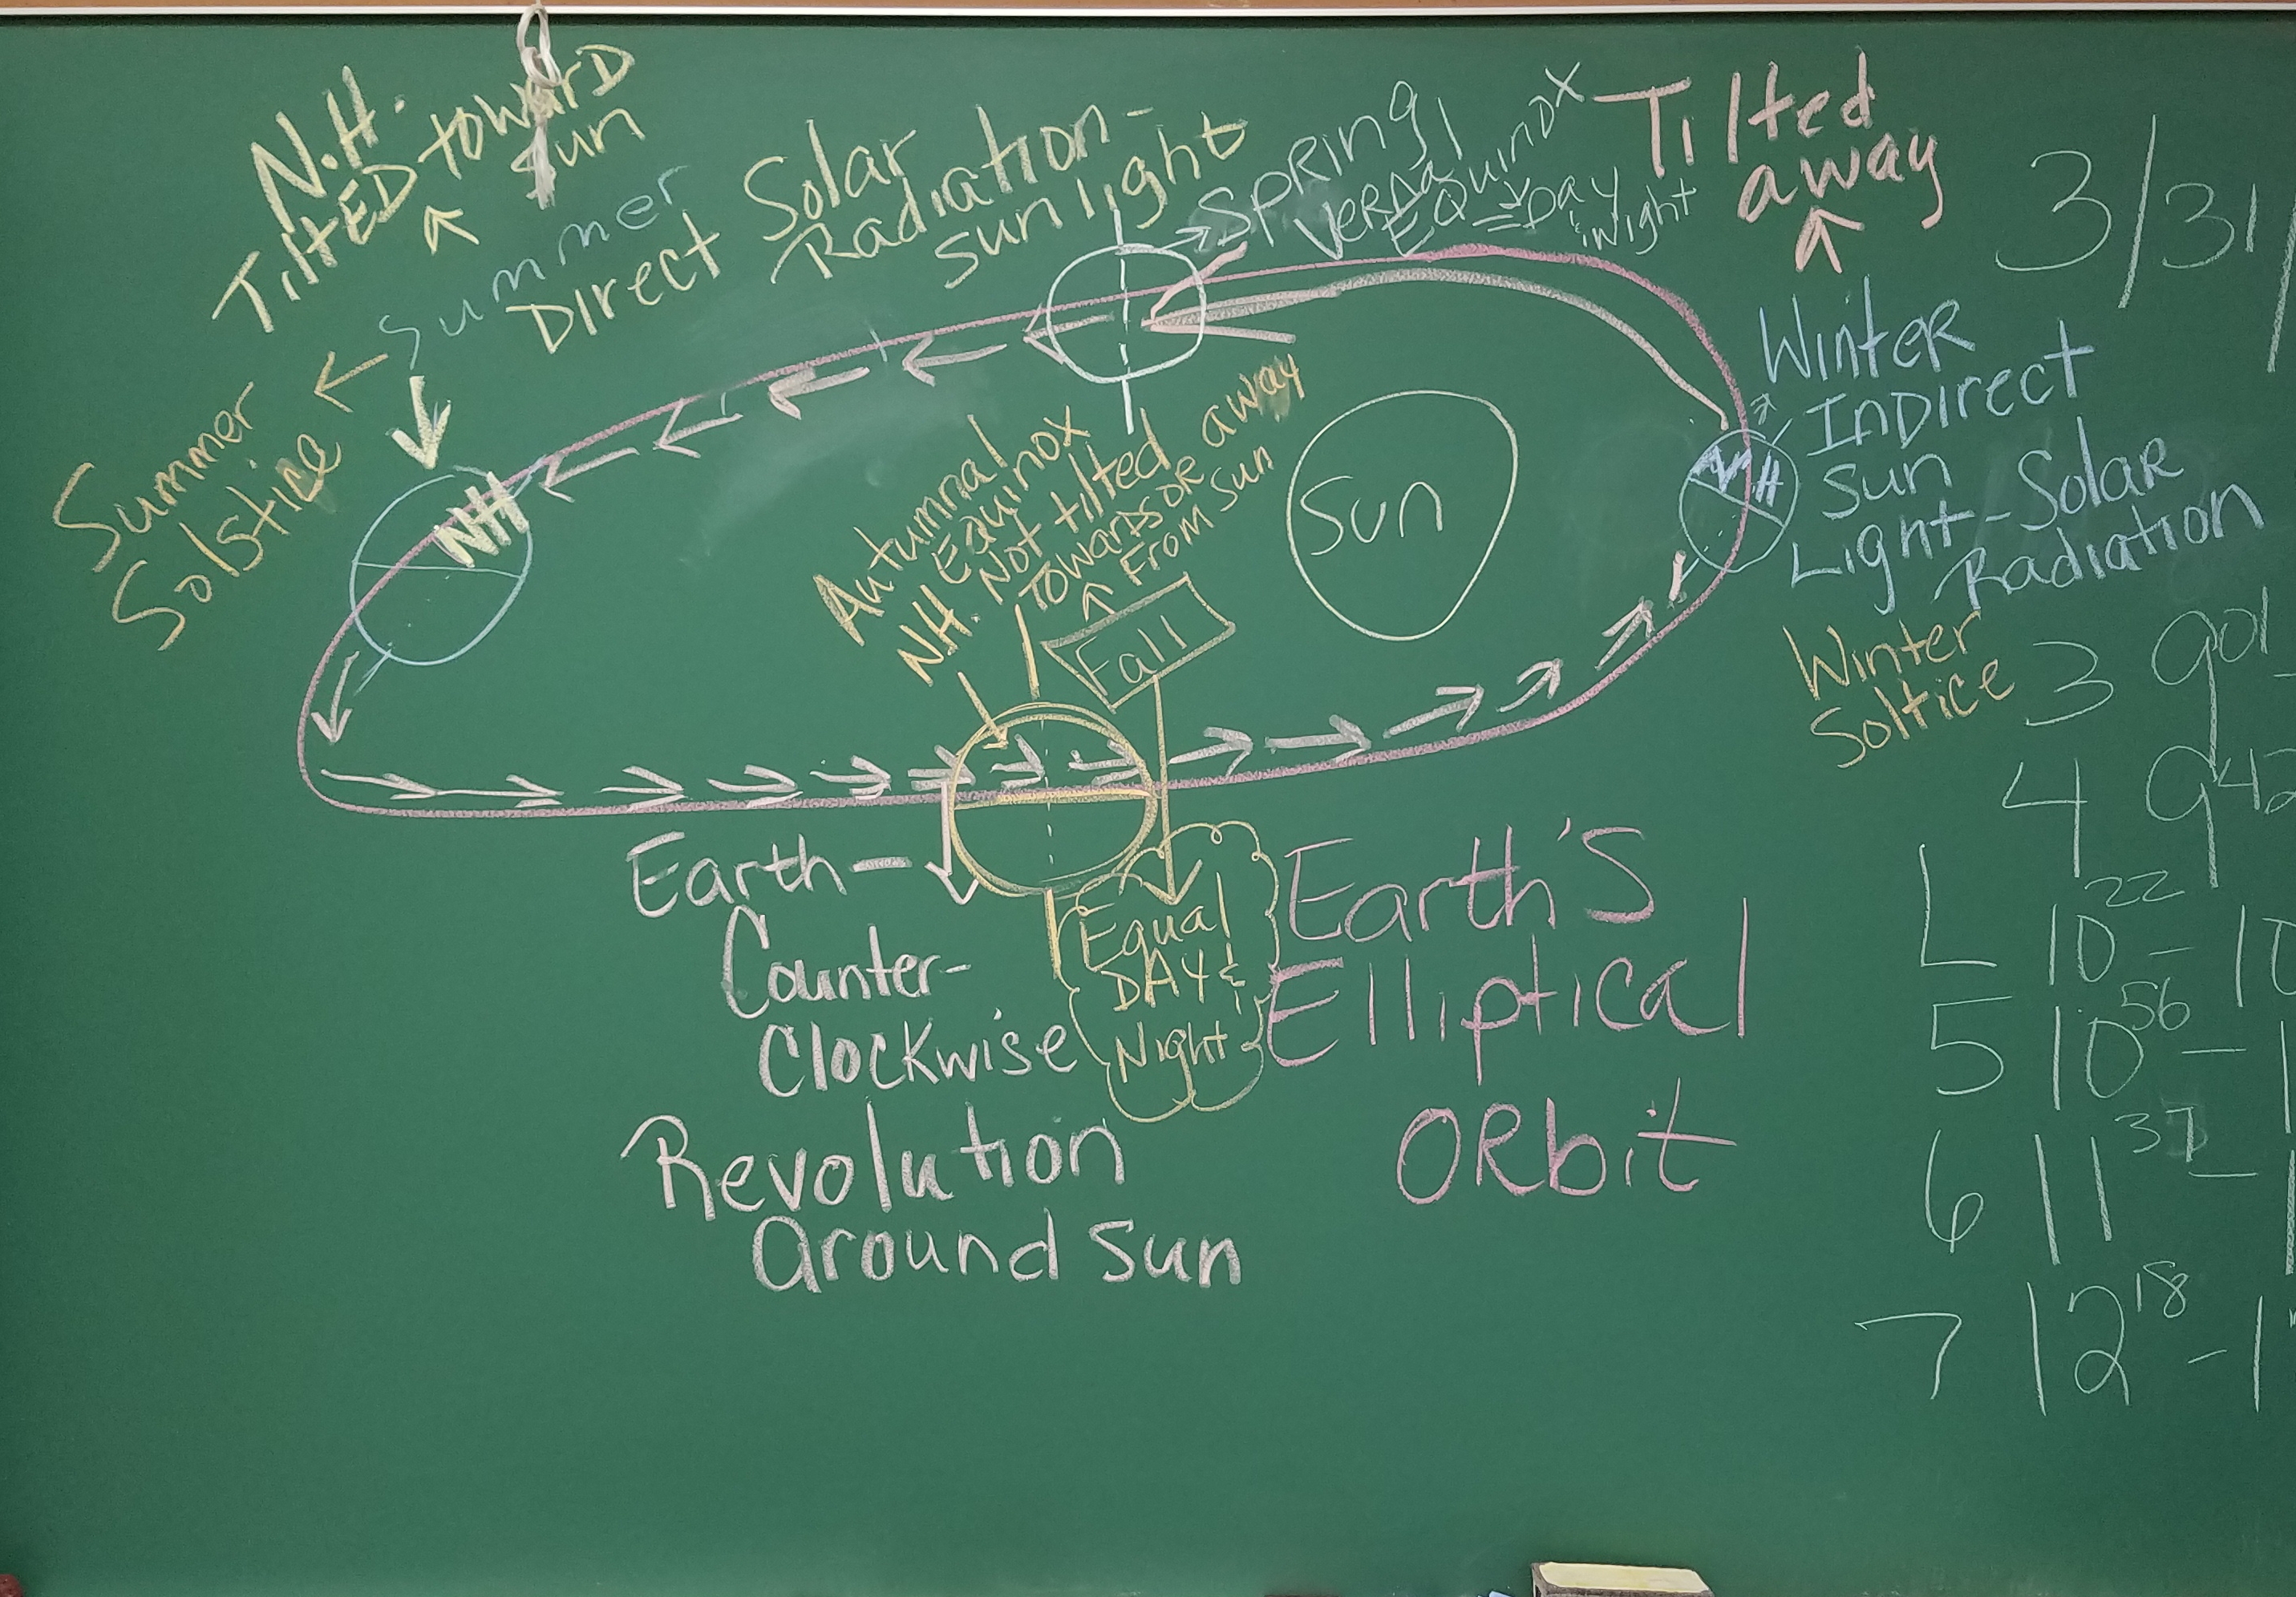 N.H.
TiltED toward
Sun
Summer
Direct Solar
Radiation-
sunlight
Summer
Solstice
NH
SPRING
Vernal
EQuinox
= Day
& Night
Tilted
away
Winter
InDirect
Sun
Light-Solar
Radiation
Winter
Soltice
NH
Sun
Autumnal
Equinox
NH. Not tilted away
Towards or
From Sun
Fall
Equal
DAY &
Night
Earth-
Counter-
Clockwise
Revolution
Around Sun
Earth's
Elliptical
ORbit
3/31/
3 901-
4 942
L 10 22 - 10
5 10 56 - 1
6 11 37 - 1
7 12 18 - 1